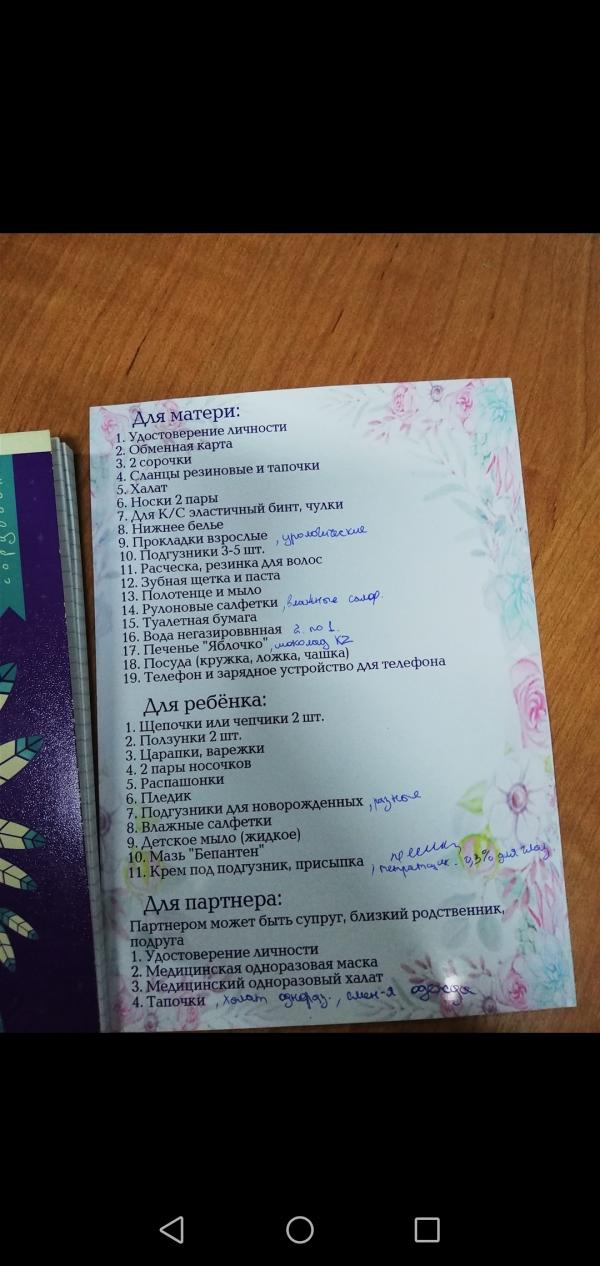 Для матери:
1. Удостоверение личности
2. Обменная карта
3. 2 сорочки
4. Сланцы резиновые и тапочки
5. Халат
6. Носки 2 пары
7. Для К/С эластичный бинт, чулки
8. Нижнее белье
9. Прокладки взрослые , урологические
10. Подгузники 3-5 шт.
11. Расческа, резинка для волос
12. Зубная щетка и паста
13. Полотенце и мыло
14. Рулоновые салфетки , влажные салф.
15. Туалетная бумага
16. Вода негазироввнная 2 по 1.
17. Печенье "Яблочко" , шоколад KZ
18. Посуда (кружка, ложка, чашка)
19. Телефон и зарядное устройство для телефона
Для ребёнка:
1. Щепочки или чепчики 2 шт.
2. Ползунки 2 шт.
3. Царапки, варежки
4. 2 пары носочков
5. Распашонки
6. Пледик
7. Подгузники для новорожденных , разные
8. Влажные салфетки
9. Детское мыло (жидкое)
10. Мазь "Бепантен"
11. Крем под подгузник, присыпка , 0,3% для глаз
Для партнера:
Партнером может быть супруг, близкий родственник,
подруга
1. Удостоверение личности
2. Медицинская одноразовая маска
3. Медицинский одноразовый халат
4. Тапочки , халат однораз. , смен-я одежда